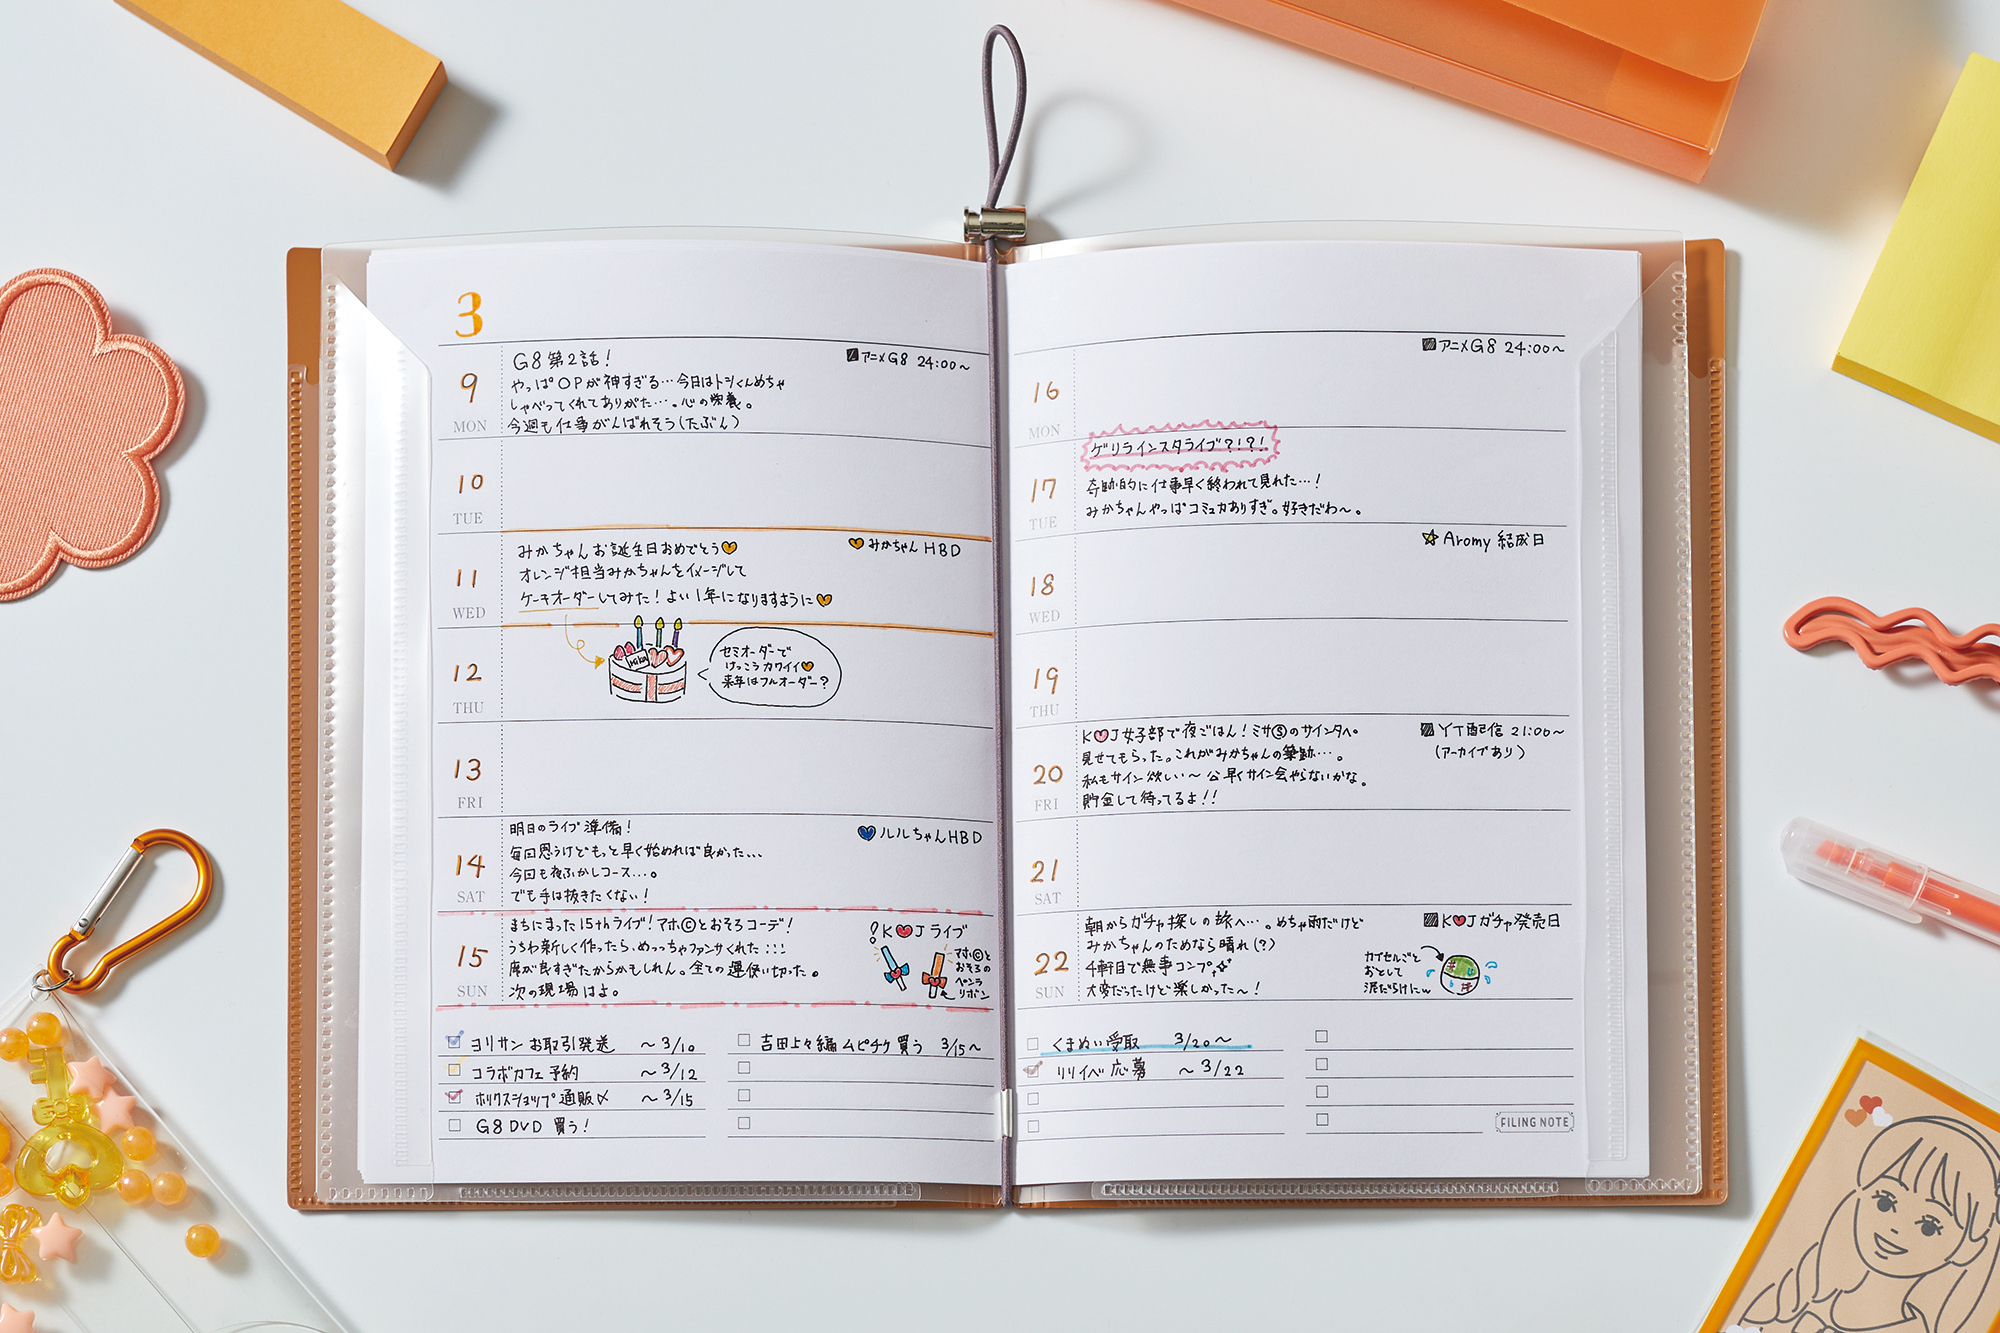 3
9
MON
G8 第2話!
アニメG8 24:00〜
やっぱOPが神すぎる…今日はトシくんめちゃ
しゃべってくれてありがた…。心の栄養。
今週も仕事がんばれそう(たぶん)
10
TUE
11
WED
みかちゃんお誕生日おめでとう
みかちゃん HBD
オレンジ担当みかちゃんをイメージして
ケーキオーダーしてみた!よい1年になりますように
12
THU
Mika
セミオーダーで
けっこうカワイイ
来年はフルオーダー?
13
FRI
14
SAT
明日のライブ準備!
ルルちゃんHBD
毎回思うけどもっと早く始めれば良かった、、、
今回も夜ふかしコース…。
でも手は抜きたくない!
15
SUN
まちにまった15thライブ!マホⒸとおそろコーデ!
うちわ新しく作ったら、めっっちゃファンサくれた:::
席が良すぎたからかもしれん。全ての運使い切った。
次の現場はよ。
!K J ライブ
マホⒸと
おそろの
ペンラ
リボン
ヨリサン お取引発送 〜3/10
コラボカフェ予約 〜3/12
ホリクスショップ通販〆 〜3/15
G8 DVD 買う!
吉田上々編 ムビチケ買う 3/15〜
16
MON
アニメG8 24:00〜
17
TUE
ゲリラインスタライブ?!?!
奇跡的に仕事早く終われて見れた…!
みかちゃんやっぱコミュカありすぎ。好きだわ〜。
18
WED
Aromy 結成日
19
THU
20
FRI
K J女子部で夜ごはん!ミサⓈのサイン
見せてもらった。これがみかちゃんの筆跡…。
私もサイン欲しい〜 早くサイン会やらないかな。
貯金して待ってるよ!!
YT配信 21:00〜
(アーカイブあり)
21
SAT
22
SUN
朝からガチャ探しの旅へ…。めちゃ雨だけど
みかちゃんのためなら晴れ(?)
4軒目で無事コンプ
大変だったけど楽しかった〜!
K Jガチャ発売日
カプセルごと
おとして
泥だらけにw
くまぬい受取 3/20〜
リリイベ応募 〜3/22
FILING NOTE